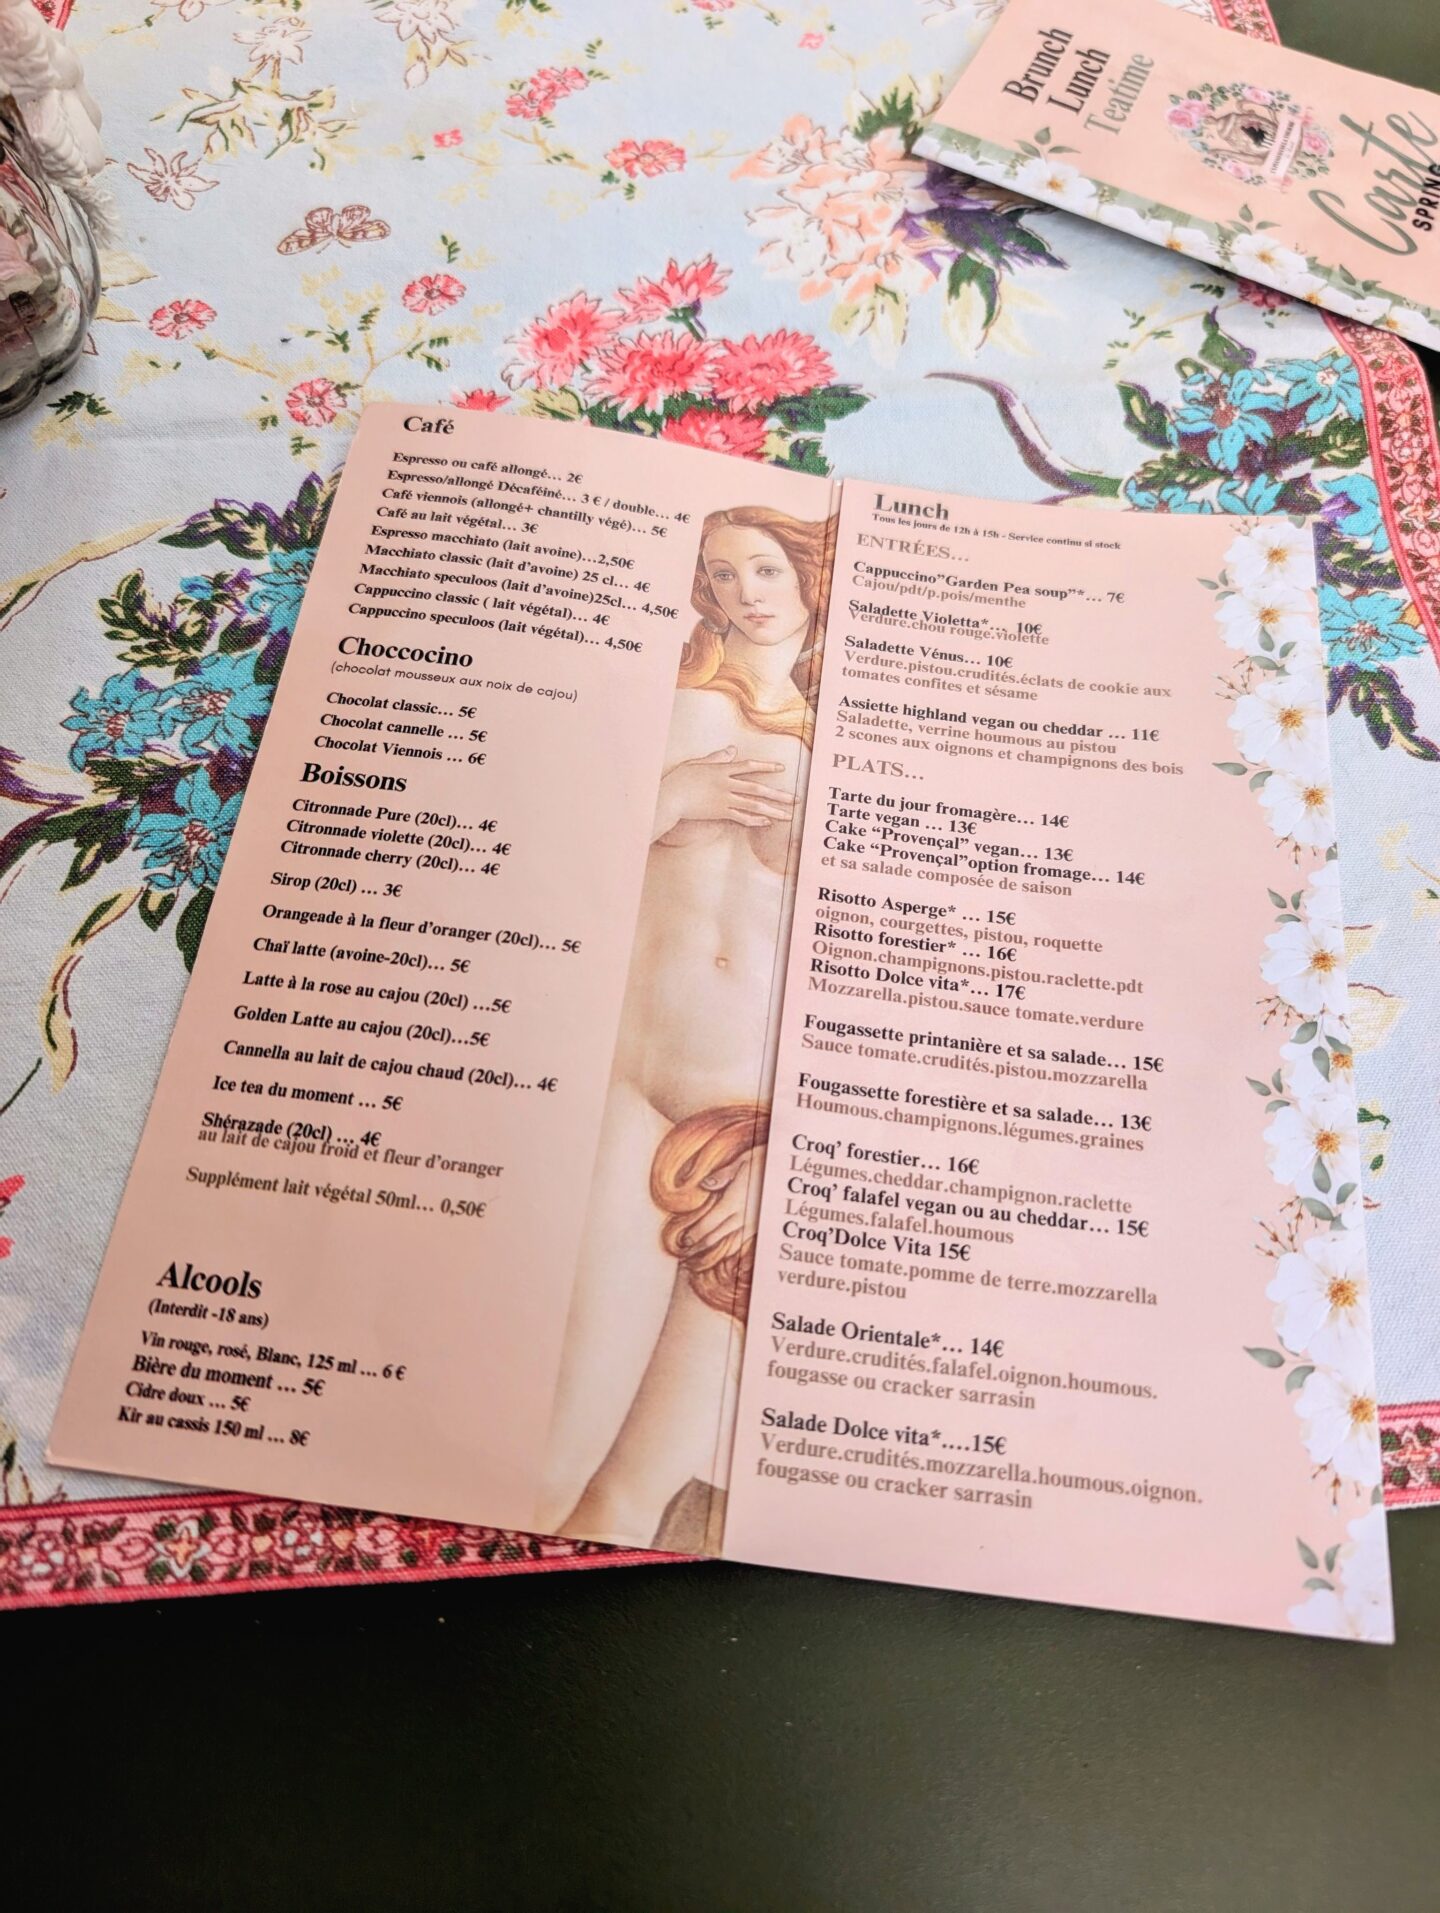 Brunch
Lunch
Teatime
Carte
SPRING
Café
Espresso ou café allongé... 2€
Espresso/allongé Décaféiné... 3 € / double... 4€
Café viennois (allongé+ chantilly végé)... 5€
Café au lait végétal... 3€
Espresso macchiato (lait avoine)...2,50€
Macchiato classic (lait d'avoine) 25 cl... 4€
Macchiato speculoos (lait d'avoine)25cl... 4,50€
Cappuccino classic ( lait végétal)... 4€
Cappuccino speculoos (lait végétal)... 4,50€
Choccocino
(chocolat mousseux aux noix de cajou)
Chocolat classic... 5€
Chocolat cannelle ... 5€
Chocolat Viennois ... 6€
Boissons
Citronnade Pure (20cl)... 4€
Citronnade violette (20cl)... 4€
Citronnade cherry (20cl)... 4€
Sirop (20cl) ... 3€
Orangeade à la fleur d'oranger (20cl)... 5€
Chaï latte (avoine-20cl)... 5€
Latte à la rose au cajou (20cl) ...5€
Golden Latte au cajou (20cl)...5€
Cannella au lait de cajou chaud (20cl)... 4€
Ice tea du moment ... 5€
Shérazade (20cl) ... 4€
au lait de cajou froid et fleur d'oranger
Supplément lait végétal 50ml... 0,50€
Alcools
(Interdit -18 ans)
Vin rouge, rosé, Blanc, 125 ml ... 6 €
Bière du moment ... 5€
Cidre doux ... 5€
Kir au cassis 150 ml ... 8€
Lunch
Tous les jours de 12h à 15h - Service continu si stock
ENTRÉES...
Cappuccino"Garden Pea soup"*... 7€
Cajou/pdt/p.pois/menthe
Saladette Violetta*... 10€
Verdure.chou rouge.violette
Saladette Vénus... 10€
Verdure.pistou.crudités.éclats de cookie aux
tomates confites et sésame
Assiette highland vegan ou cheddar ... 11€
Saladette, verrine houmous au pistou
2 scones aux oignons et champignons des bois
PLATS...
Tarte du jour fromagère... 14€
Tarte vegan ... 13€
Cake “Provençal” vegan... 13€
Cake “Provençal”option fromage... 14€
et sa salade composée de saison
Risotto Asperge* ... 15€
oignon, courgettes, pistou, roquette
Risotto forestier* ... 16€
Oignon.champignons.pistou.raclette.pdt
Risotto Dolce vita*... 17€
Mozzarella.pistou.sauce tomate.verdure
Fougassette printanière et sa salade... 15€
Sauce tomate.crudités.pistou.mozzarella
Fougassette forestière et sa salade... 13€
Houmous.champignons.légumes.graines
Croq' forestier... 16€
Légumes.cheddar.champignon.raclette
Croq' falafel vegan ou au cheddar... 15€
Légumes.falafel.houmous
Croq'Dolce Vita 15€
Sauce tomate.pomme de terre.mozzarella
verdure.pistou
Salade Orientale*... 14€
Verdure.crudités.falafel.oignon.houmous.
fougasse ou cracker sarrasin
Salade Dolce vita*....15€
Verdure.crudités.mozzarella.houmous.oignon.
fougasse ou cracker sarrasin